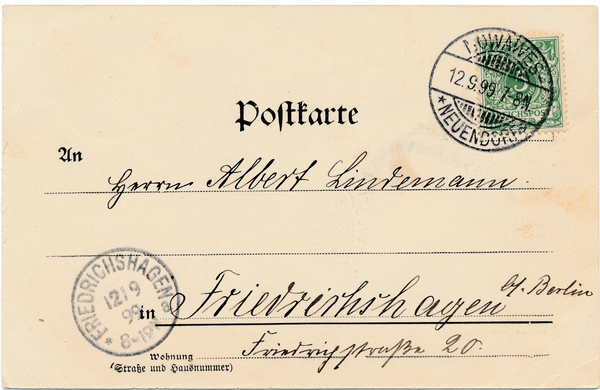 NOWAWES
12.9.99. 7-8N.
* NEUENDORF *
5
REICHSPOST
Postkarte
An
Herrn Albert Lindemann.
FRIEDRICHSHAGEN
12 9
99
*
in Friedrichshagen b/Berlin
Friedrichstraße 20.
Wohnung
(Straße und Hausnummer)